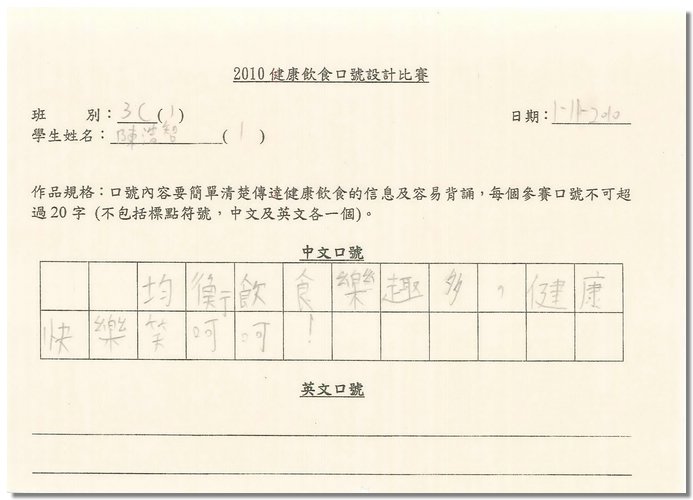 2010 健康飲食口號設計比賽
班 別：3C(1) 日期：1-11-2010
學生姓名：陳浩智 (1)
作品規格：口號內容要簡單清楚傳達健康飲食的信息及容易背誦，每個參賽口號不可超
過 20 字 (不包括標點符號，中文及英文各一個)。
中文口號
均衡飲食樂趣多，健康
快樂笑呵呵！
英文口號